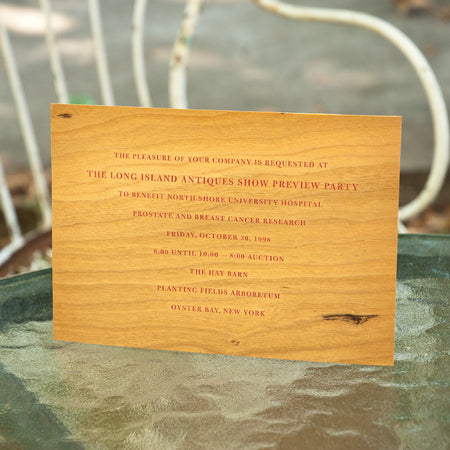 THE PLEASURE OF YOUR COMPANY IS REQUESTED AT
THE LONG ISLAND ANTIQUES SHOW PREVIEW PARTY
TO BENEFIT NORTH SHORE UNIVERSITY HOSPITAL
PROSTATE AND BREAST CANCER RESEARCH
FRIDAY, OCTOBER 30, 1998
6:00 UNTIL 10:00 — 8:00 AUCTION
THE HAY BARN
PLANTING FIELDS ARBORETUM
OYSTER BAY, NEW YORK